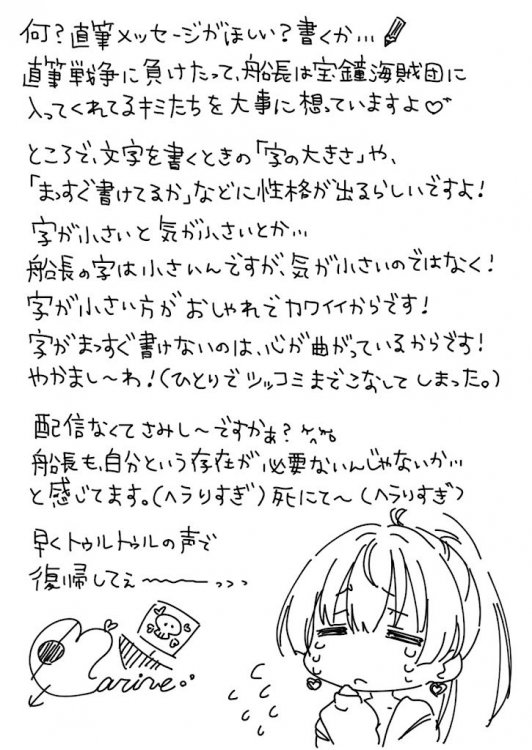 何？直筆メッセージがほしい？書くか…
直筆戦争に負けたって、船長は宝鐘海賊団に
入ってくれてるキミたちを大事に想っていますよ♡
ところで、文字を書くときの「字の大きさ」や、
「まっすぐ書けてるか」などに性格が出るらしいですよ！
字が小さいと気が小さいとか…
船長の字は小さいんですが、気が小さいのではなく！
字が小さい方がおしゃれでカワイイからです！
字がまっすぐ書けないのは、心が曲がっているからです！
やかまし～わ！(ひとりでツッコミまでこなしてしまった。)
配信なくてさみし～ですかぁ？
船長も、自分という存在が必要ないんじゃないか…
と感じてます。(ヘラりすぎ)死にて～(ヘラりすぎ)
早くトゥルトゥルの声で
復帰してぇ～～～っっっ
Marine